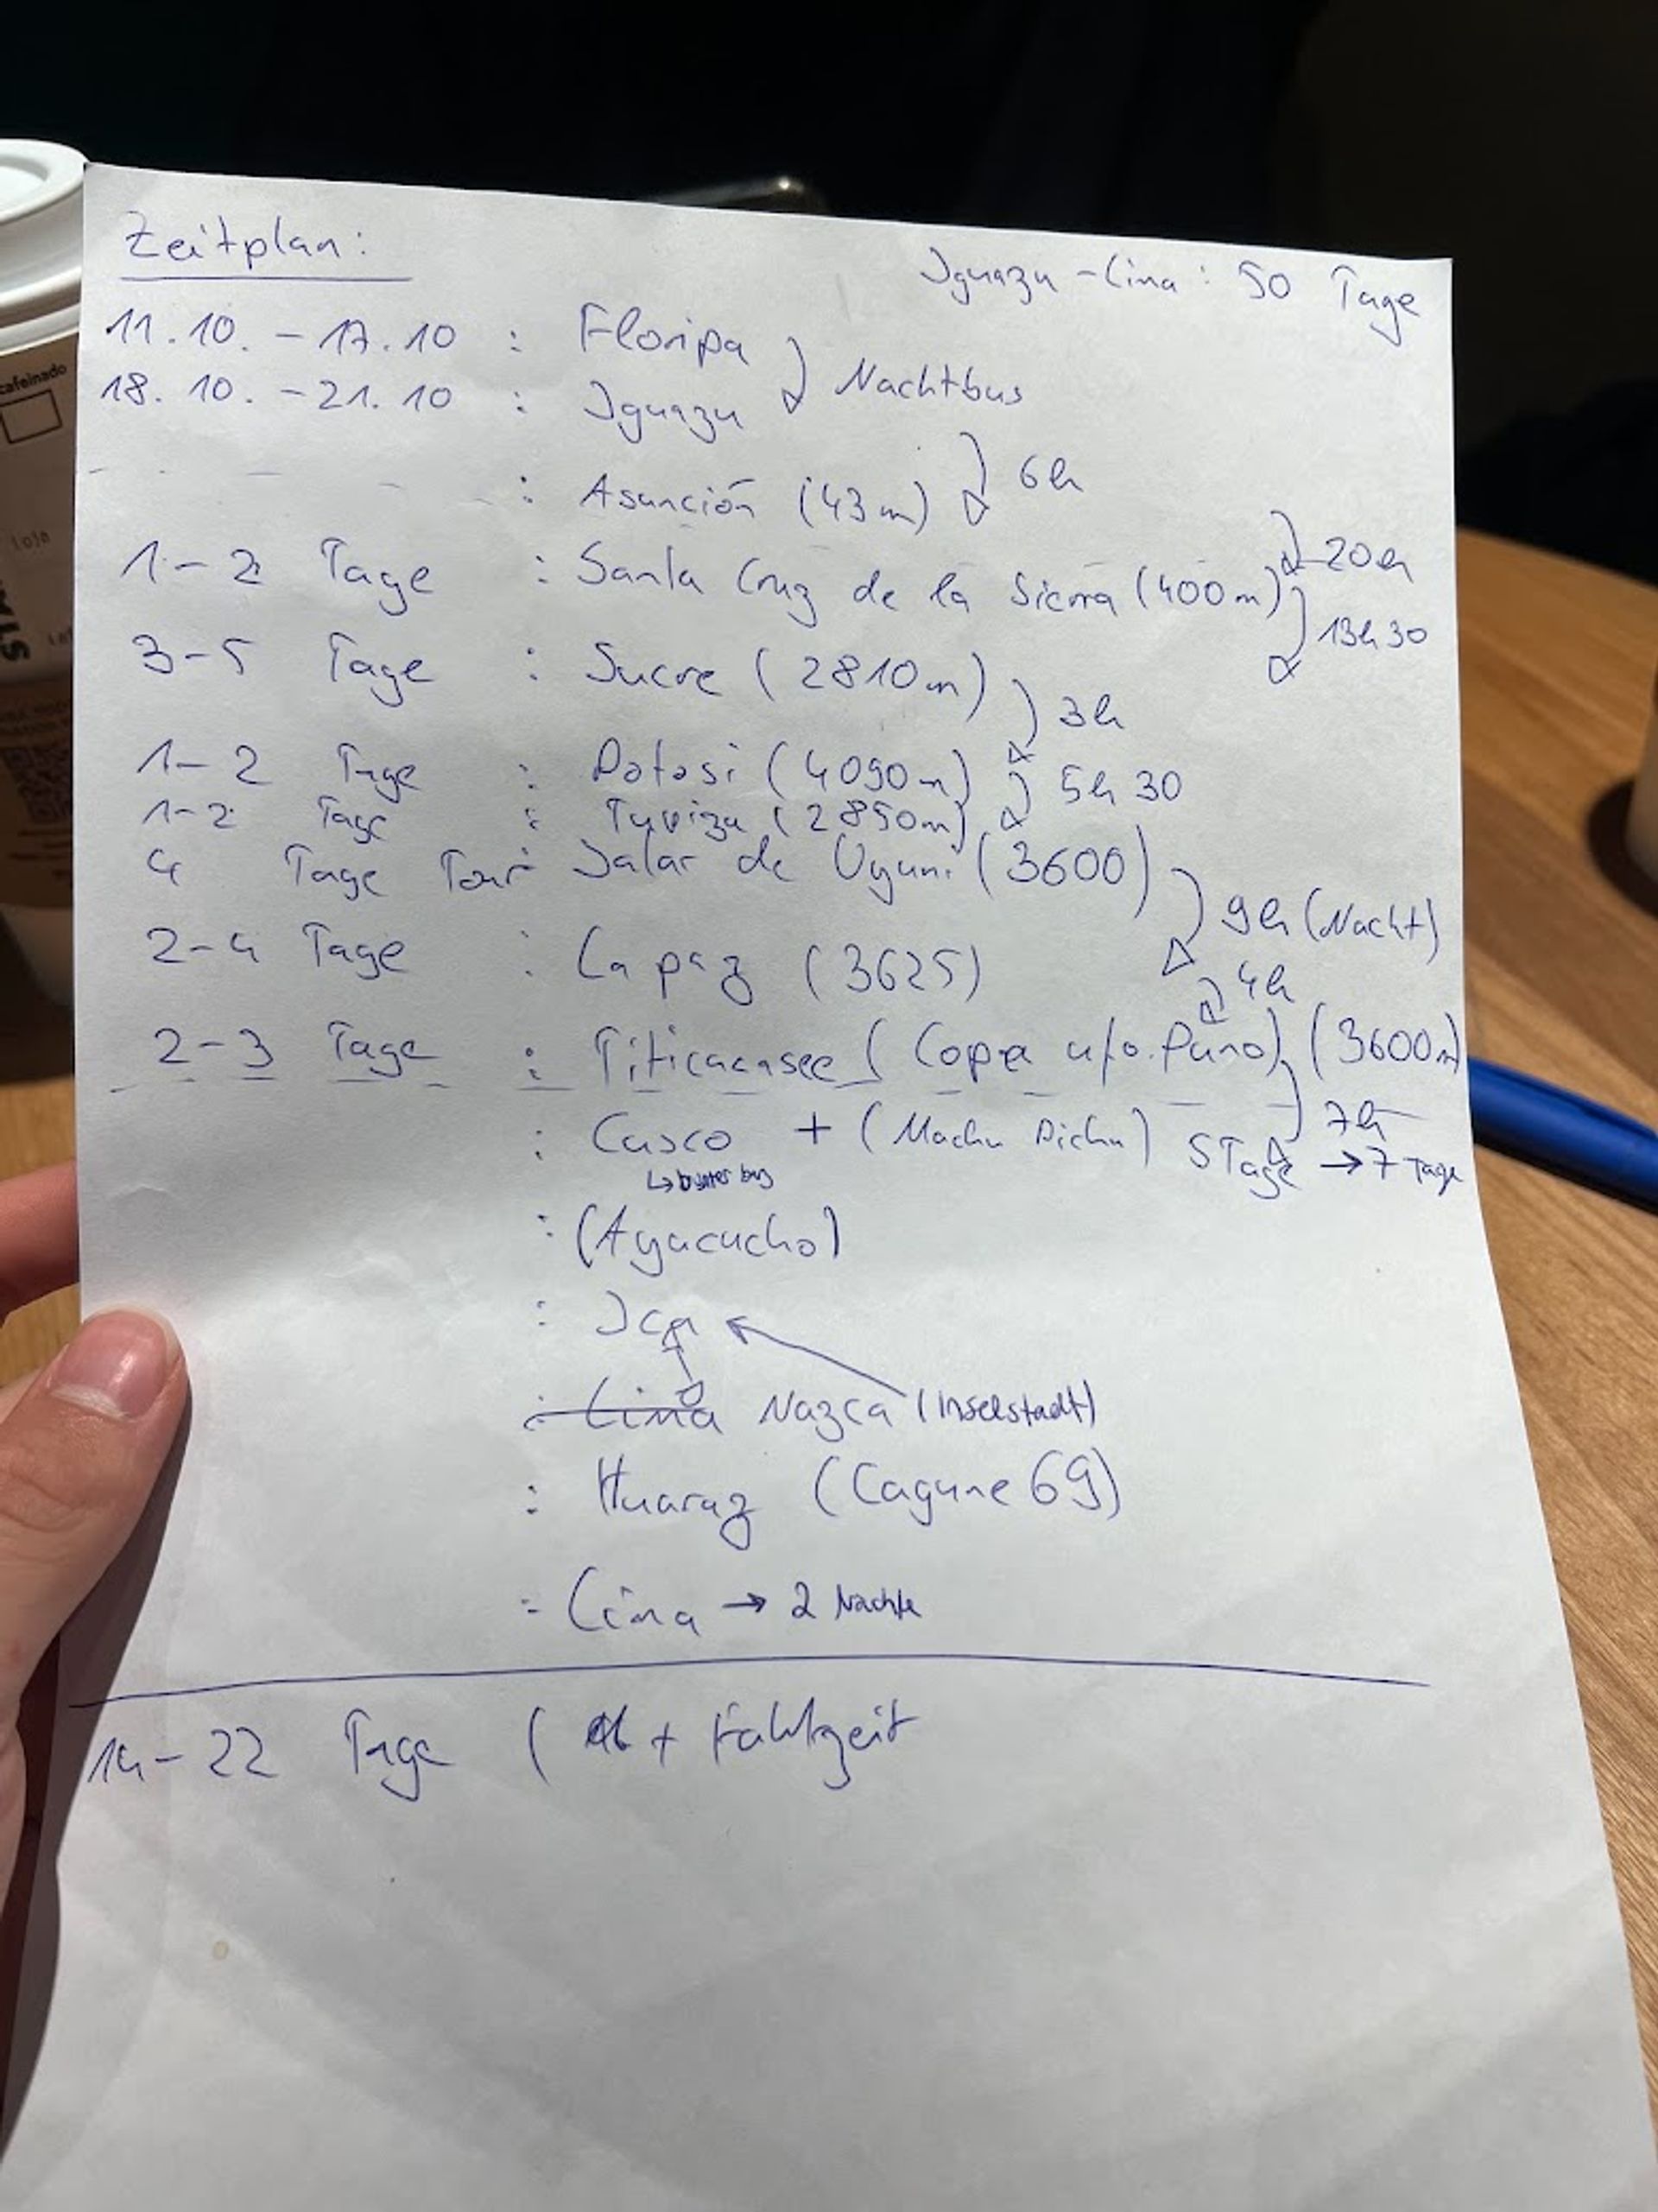 Zeitplan:
Iguazu - Lima : 50 Tage
11.10. - 17.10 : Floripa
Nachtbus
18.10. - 21.10 : Iguazu
6h
: Asunción (43m)
20h
1-2 Tage : Santa Cruz de la Sierra (400m)
13h30
3-5 Tage : Sucre (2810m)
3h
1-2 Tage : Potosi (4090m)
5h30
1-2 Tage : Tupiza (2850m)
4 Tage Tour Salar de Uyuni (3600)
9h (Nacht)
2-4 Tage : La paz (3625)
4h
2-3 Tage : Titicacasee (Copa u/o. Puno) (3600m)
7h
: Cusco + (Machu Pichu) 5 Tage → 7 Tage
↳ bus
: (Ayacucho)
: Ica
: Lima Nazca (Inselstadt)
: Huaraz (Lagune 69)
: Lima → 2 Nächte
14-22 Tage ( + Fahrtzeit
cafeinado
Loja